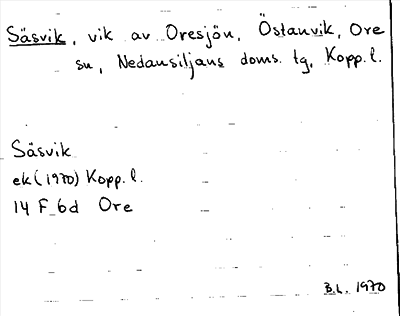 Säsvik, vik av Oresjön, Östanvik, Ore
sn, Nedansiljans doms. tg, Kopp. l.
Säsvik
ek (1970) Kopp. l.
14 F 6d Ore
B.L. 1970